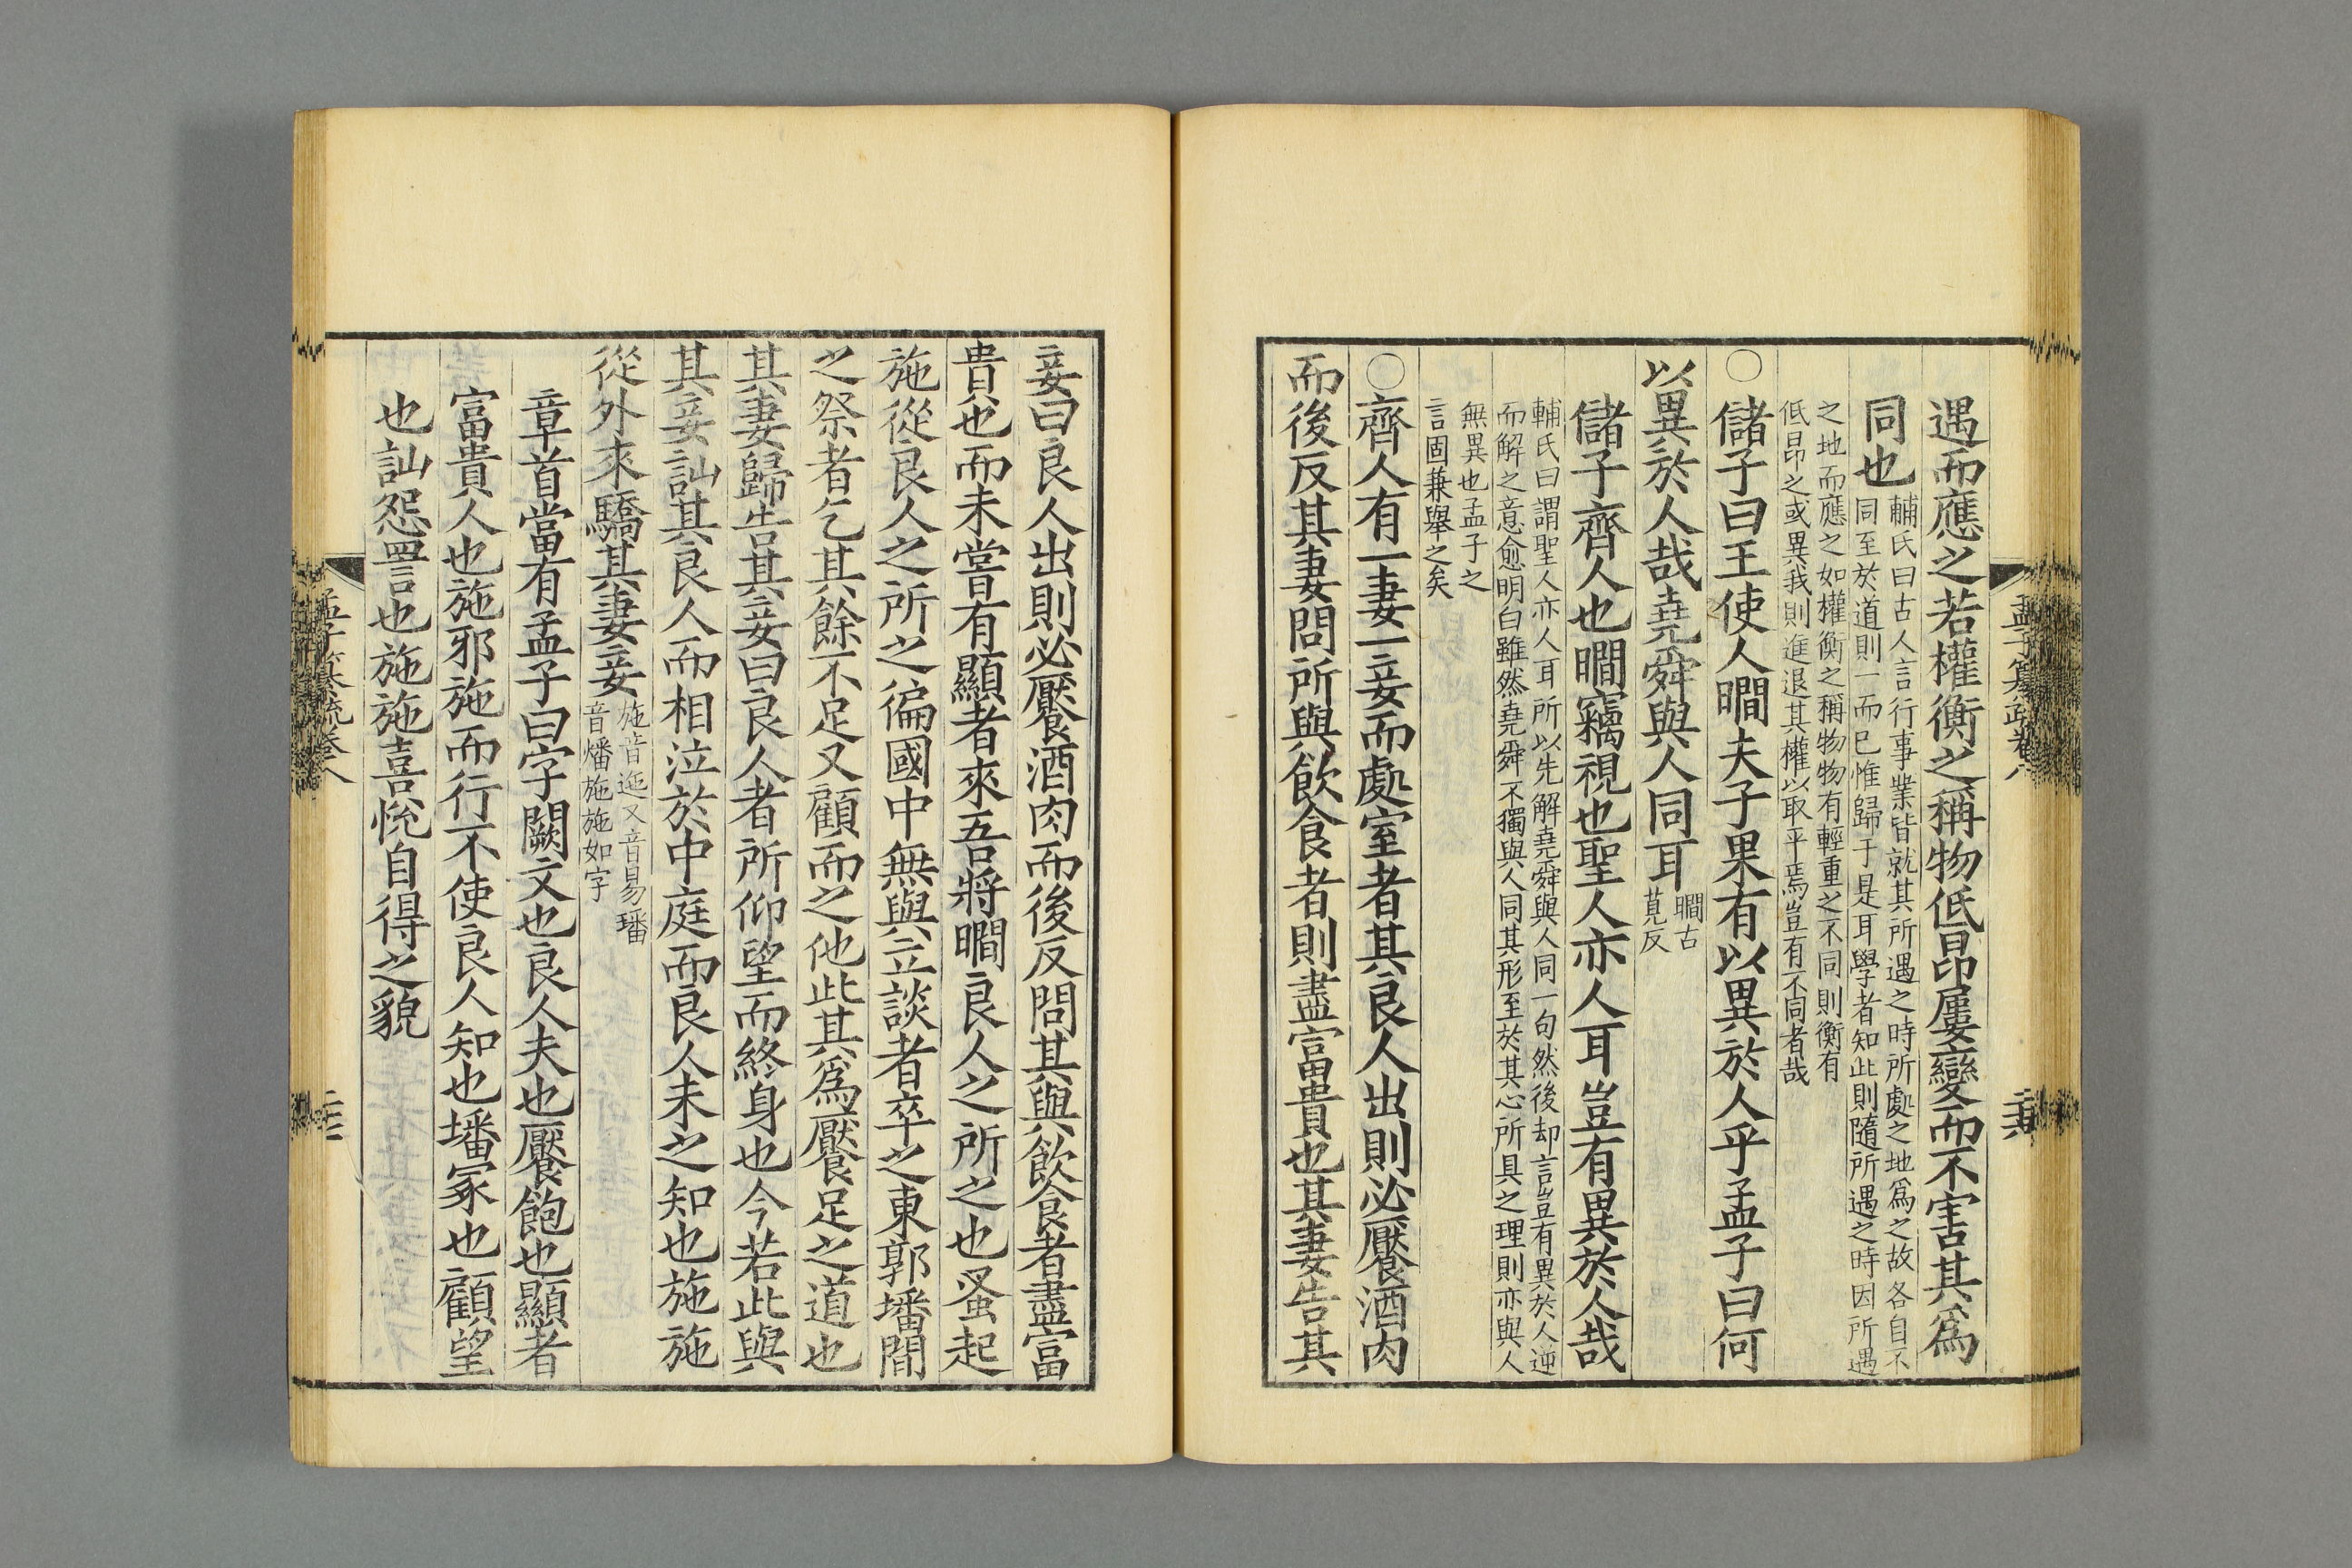 遇而應之若權衡之稱物低昂屢變而不害其爲
同也
輔氏曰古人言行事業皆就其所遇之時所處之地爲之故各自不
同至於道則一而已惟歸于是耳學者知此則隨所遇之時因所遇
之地而應之如權衡之稱物物有輕重之不同則衡有
低昂之或異我則進退其權以取平焉豈有不同者哉
○儲子曰王使人瞷夫子果有以異於人乎孟子曰何
以異於人哉堯舜與人同耳
瞷古
莧反
儲子齊人也瞷竊視也聖人亦人耳豈有異於人哉
輔氏曰謂聖人亦人耳所以先解堯舜與人同一句然後却言豈有異於人逆
而解之意愈明白雖然堯舜不獨與人同其形至於其心所具之理則亦與人
無異也孟子之
言固兼舉之矣
○齊人有一妻一妾而處室者其良人出則必饜酒肉
而後反其妻問所與飲食者則盡富貴也其妻告其
孟子纂疏卷八
二十六
妾曰良人出則必饜酒肉而後反問其與飲食者盡富
貴也而未嘗有顯者來吾將瞷良人之所之也蚤起
施從良人之所之徧國中無與立談者卒之東郭墦間
之祭者乞其餘不足又顧而之他此其爲饜足之道也
其妻歸告其妾曰良人者所仰望而終身也今若此與
其妾訕其良人而相泣於中庭而良人未之知也施施
從外來驕其妻妾
施音迤又音易墦
音燔施施如字
章首當有孟子曰字闕文也良人夫也饜飽也顯者
富貴人也施邪施而行不使良人知也墦冢也顧望
也訕怨詈也施施喜悅自得之貌
孟子纂疏卷八
二十七